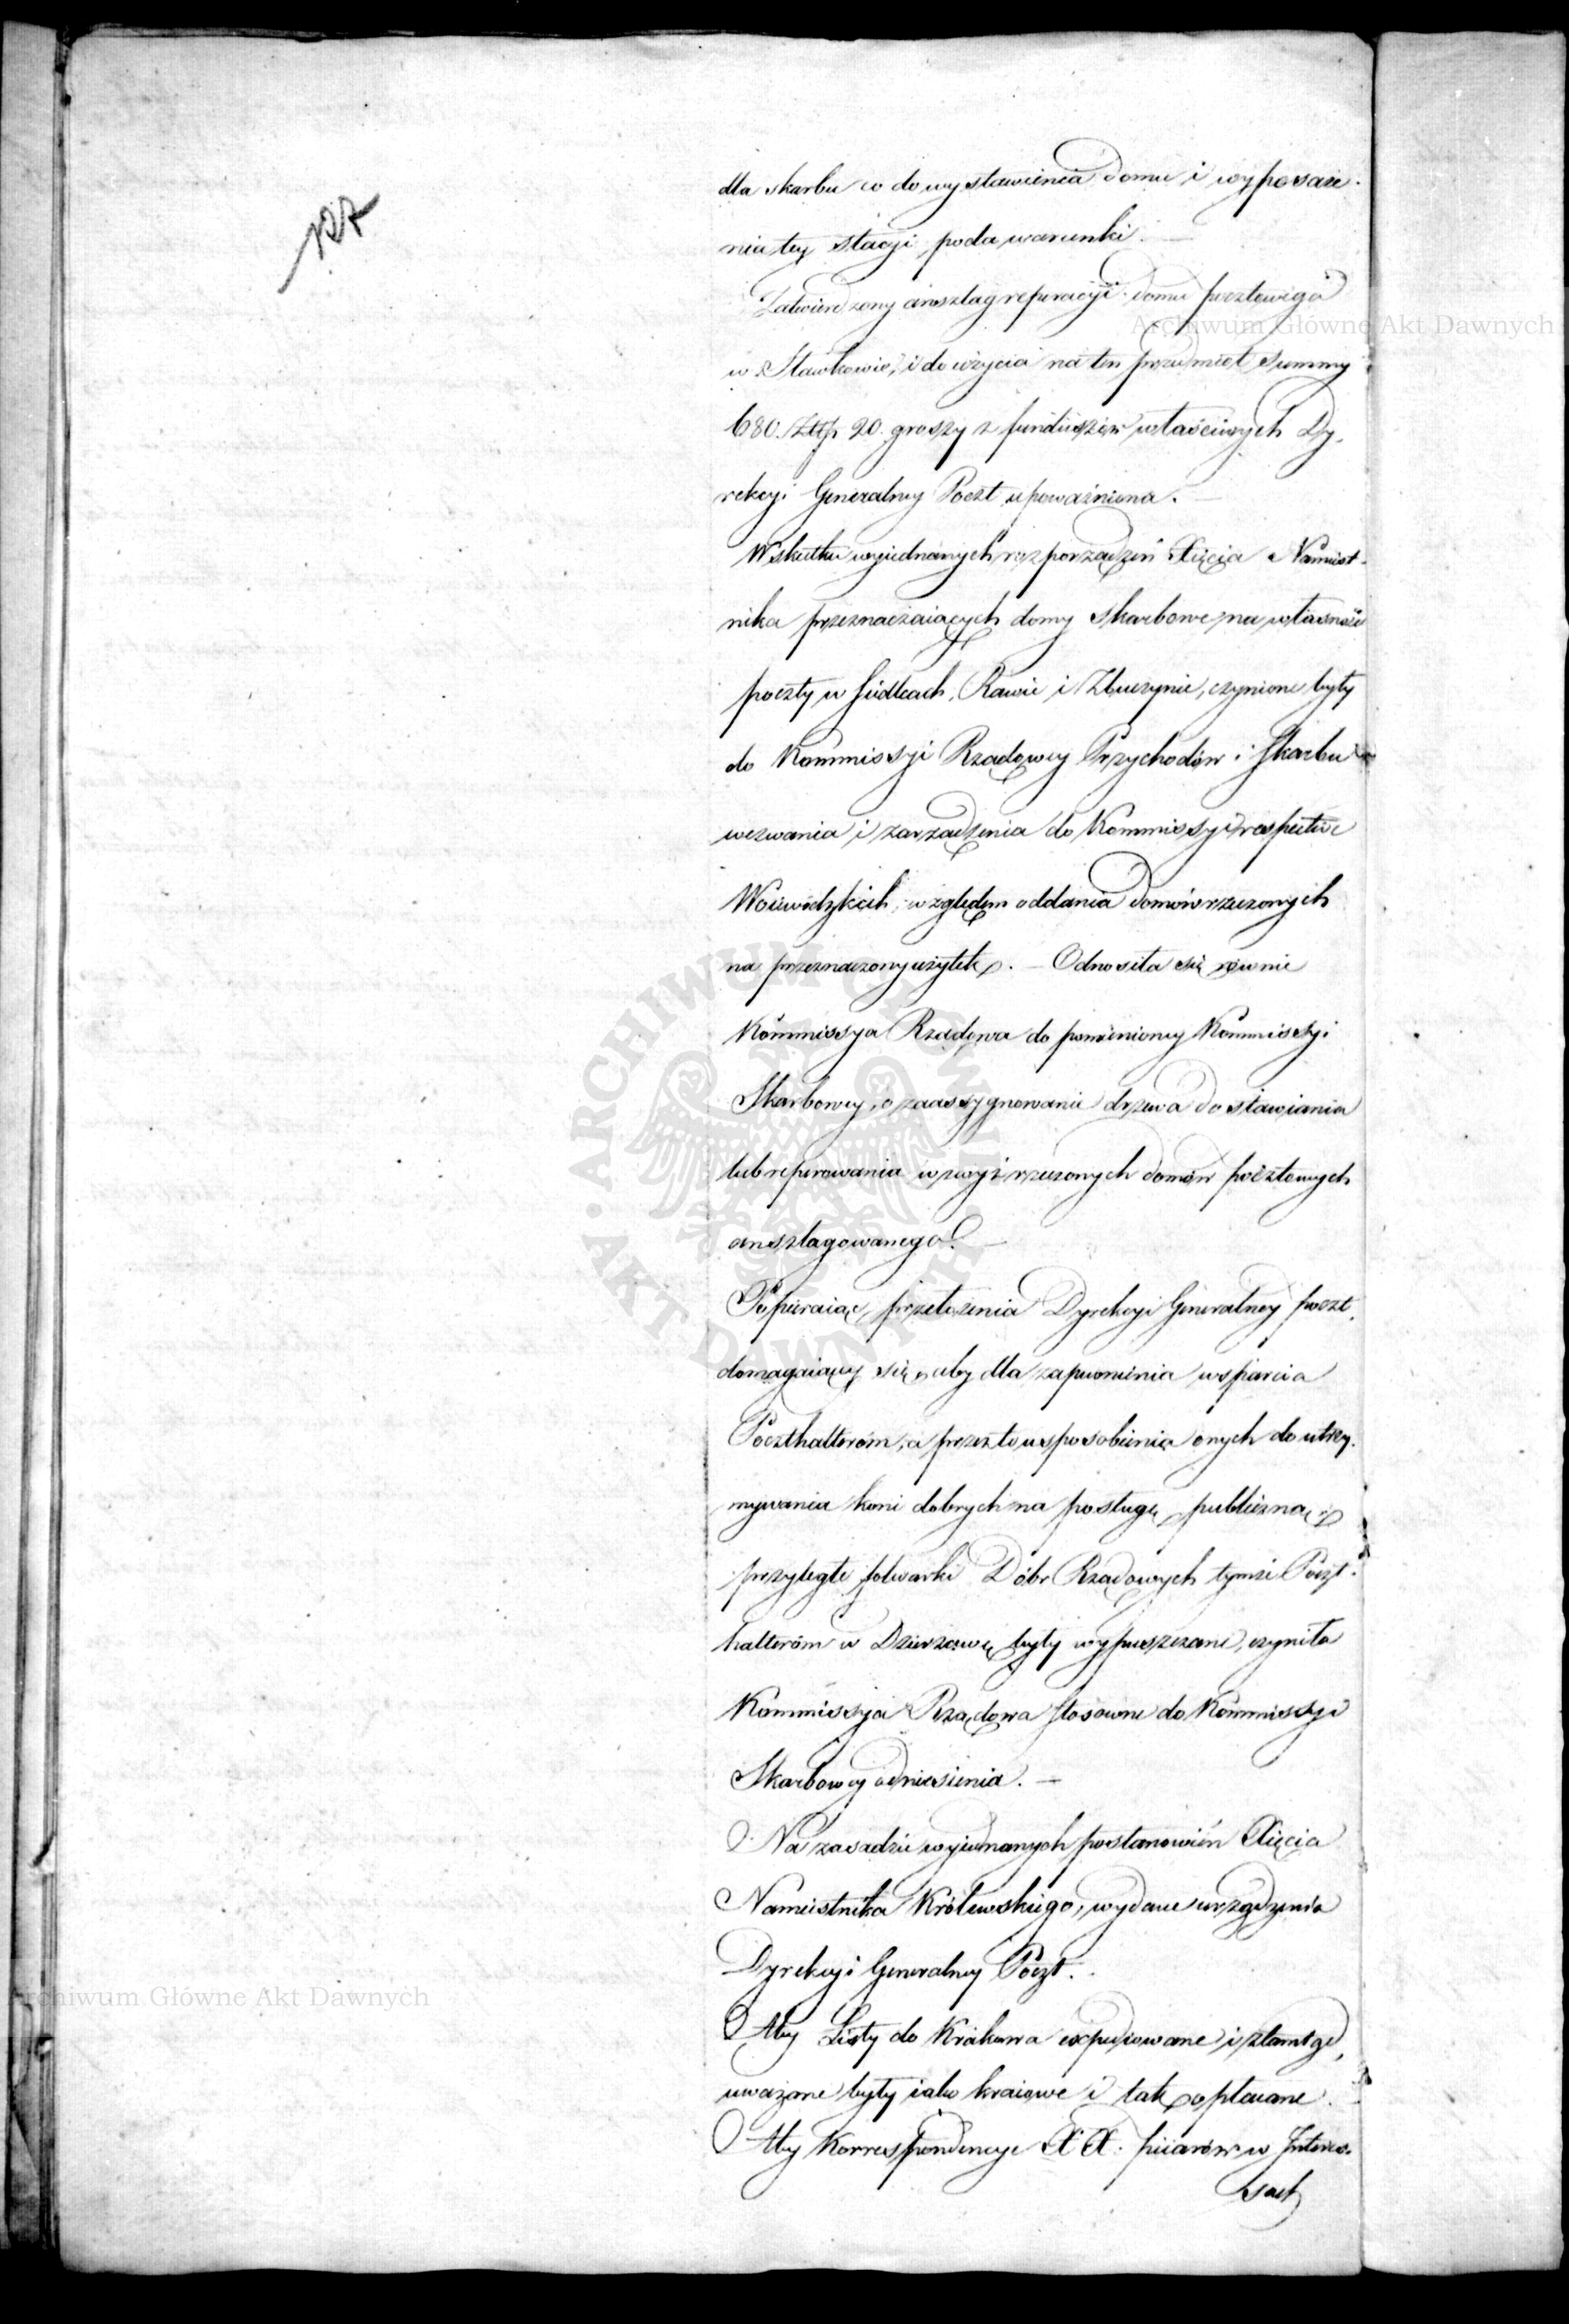 127
dla skarbu co do wystawienia domu i wyposaże-
nia tey stacyi poda warunki. —
Zatwierdzony anszlag reperacyi domu pocztowego
w Sławkowie, i do użycia na ten przedmiot summy
680. Złłp 20. groszy z funduszów właściwych Dy-
rekcyi Generalney Poczt upoważniona. —
W skutku wyiednanych rozporządzeń Xięcia Namiest-
nika przeznaczaiących domy skarbowe na własność
poczty w Siedlcach, Rawie i Zbuczynie, czynione były
do Kommissyi Rządowey Przychodów i Skarbu
wezwania i zarządzenia do Kommissyi respective
Woiewodzkich, względem oddania domów rzeczonych
na przeznaczony użytek. — Odnosiła się równie
Kommissya Rządowa do pomienioney Kommissyi
Skarbowey, o zaassygnowanie drzewa do stawiania
lub reperowania wzwyż rzeczonych domów pocztowych
anszlagowanego. —
Popieraiąc przełożenia Dyrekcyi Generalney poczt,
domagaiącey się, aby dla zapewnienia wsparcia
Poczthalterom, a przezto usposobienia onych do utrzy-
mywania koni dobrych na posługę publiczną
przyległe folwarki Dóbr Rządowych tymże Poczt-
halteróm w Dzierżawę były wypuszczane, czyniła
Kommissya Rządowa stosowne do Kommissyi
Skarbowey odniesienia. —
Na zasadzie wyiednanych postanowień Xięcia
Namiestnika Królewskiego, wydane urządzenia
Dyrekcyi Generalney Poczt.
Aby Listy do Krakowa expediowane i ztamtąd,
uważane były iako kraiowe i tak opłacane. —
Aby Korrespondencye XX. piiarów w Interes-
sach
Archiwum Główne Akt Dawnych
Archiwum Główne Akt Dawnych
· ARCHIWUM GŁÓWNE · AKT DAWNYCH